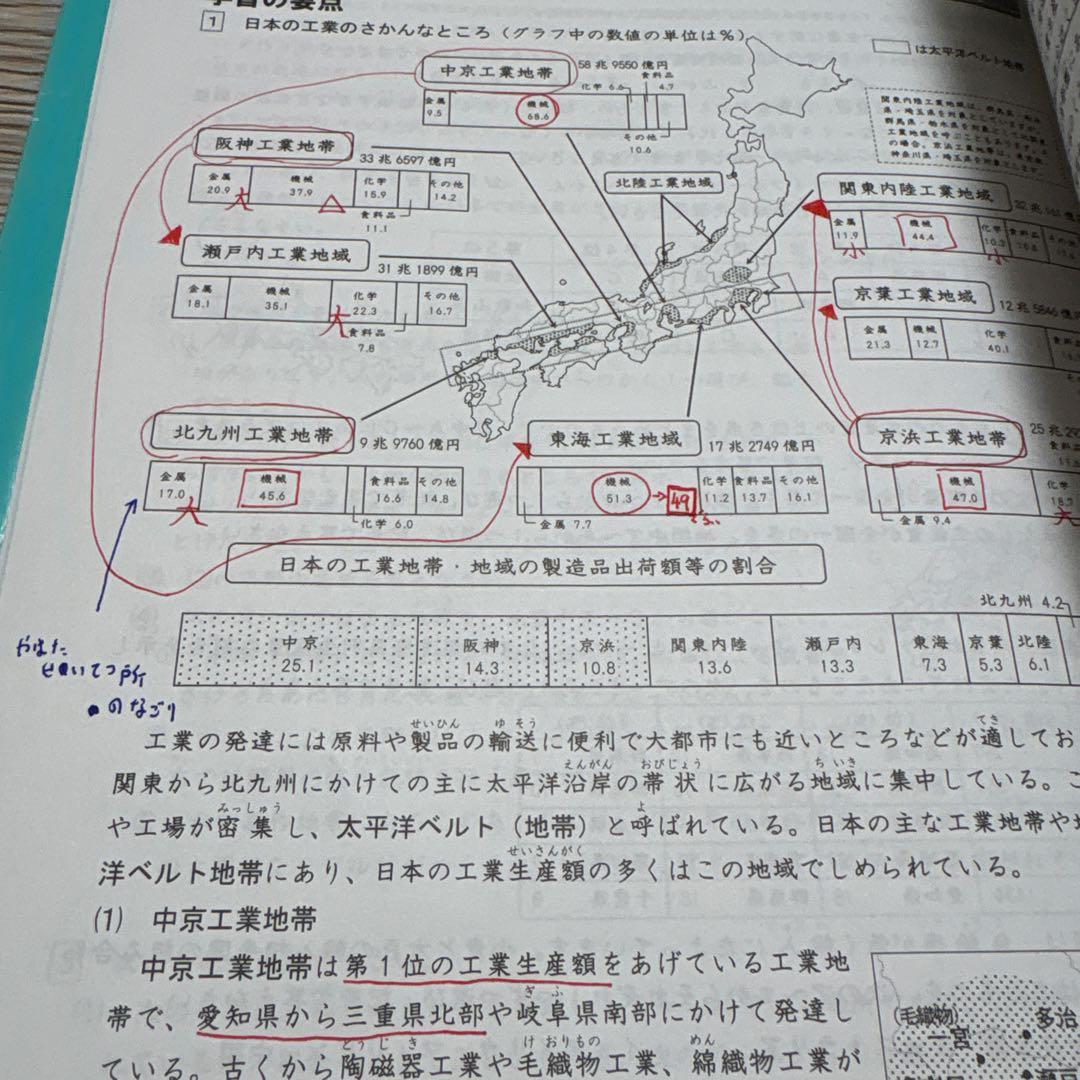 学習の要点
1 日本の工業のさかんなところ(グラフ中の数値の単位は%)
は太平洋ベルト地帯
中京工業地帯 58兆9550億円
金属 9.5 機械 68.6 化学 6.6 食料品 4.7 その他 10.6
阪神工業地帯 33兆6597億円
金属 20.9 機械 37.9 化学 15.9 食料品 11.1 その他 14.2
大 △
北陸工業地域
関東内陸工業地域
金属 11.9 機械 44.4 化学
小 小
瀬戸内工業地域 31兆1899億円
金属 18.1 機械 35.1 化学 22.3 食料品 7.8 その他 16.7
大
京葉工業地域 12兆5846億円
金属 21.3 機械 12.7 化学 40.1
北九州工業地帯 9兆9760億円
金属 17.0 機械 45.6 化学 6.0 食料品 16.6 その他 14.8
大
東海工業地域 17兆2749億円
金属 7.7 機械 51.3 → 49 化学 11.2 食料品 13.7 その他 16.1
京浜工業地帯 25兆
金属 9.4 機械 47.0 化学
大
日本の工業地帯・地域の製造品出荷額等の割合
北九州 4.2
中京 25.1 阪神 14.3 京浜 10.8 関東内陸 13.6 瀬戸内 13.3 東海 7.3 京葉 5.3 北陸 6.1
やはた
せいてつ所
のなごり
工業の発達には原料や製品の輸送に便利で大都市にも近いところなどが適してお
関東から北九州にかけての主に太平洋沿岸の帯状に広がる地域に集中している。こ
や工場が密集し、太平洋ベルト(地帯)と呼ばれている。日本の主な工業地帯や地
洋ベルト地帯にあり、日本の工業生産額の多くはこの地域でしめられている。
(1) 中京工業地帯
中京工業地帯は第1位の工業生産額をあげている工業地
帯で、愛知県から三重県北部や岐阜県南部にかけて発達し
ている。古くから陶磁器工業や毛織物工業、綿織物工業が
(毛織物)
一宮
多治
瀬戸